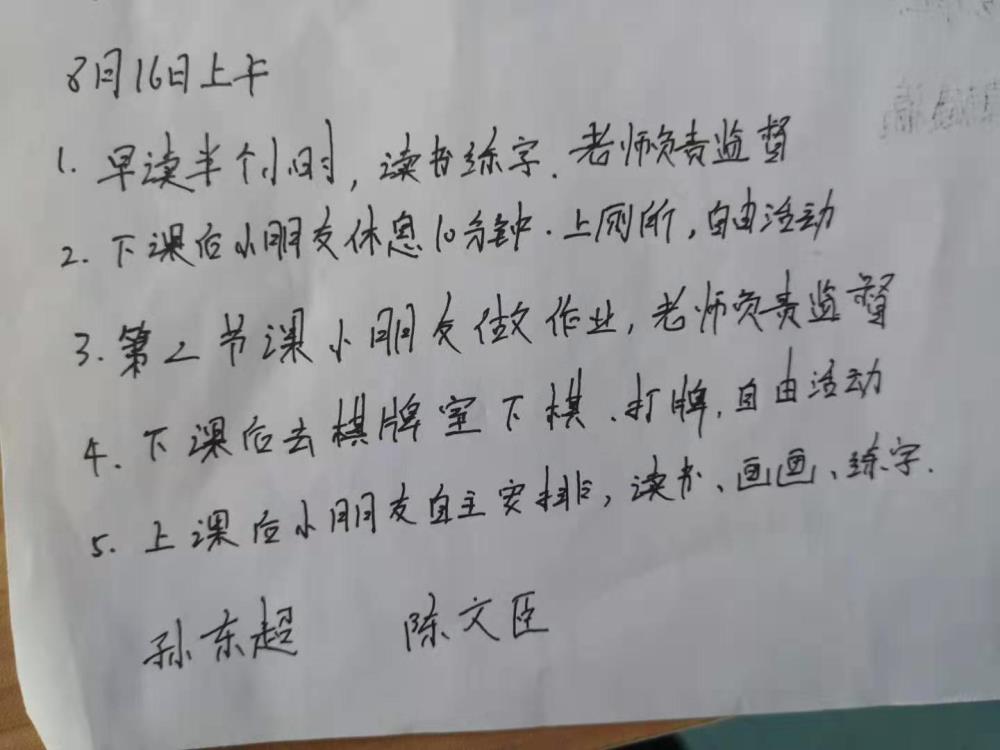 8月16日上午
1. 早读半个小时，读书练字．老师负责监督
2. 下课后小朋友休息10分钟．上厕所，自由活动
3. 第二节课小朋友做作业，老师负责监督
4. 下课后去棋牌室下棋、打牌，自由活动
5. 上课后小朋友自主安排，读书、画画、练字．
孙东超 陈文臣